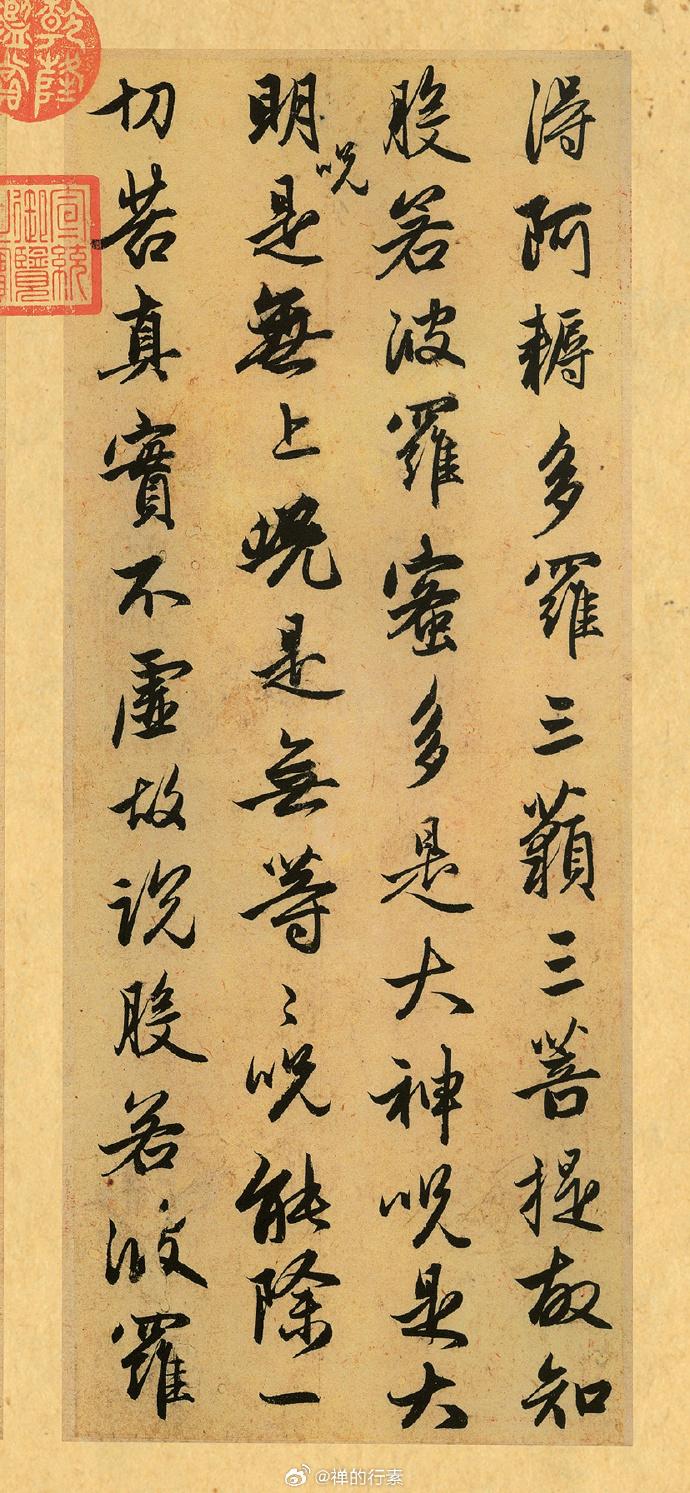 得阿耨多羅三藐三菩提故知
般若波羅蜜多是大神呪是大
明呪是無上呪是無等〻呪能除一
切苦真實不虛故說般若波羅
乾隆
鑑賞
宣統
御覽
@禅的行素